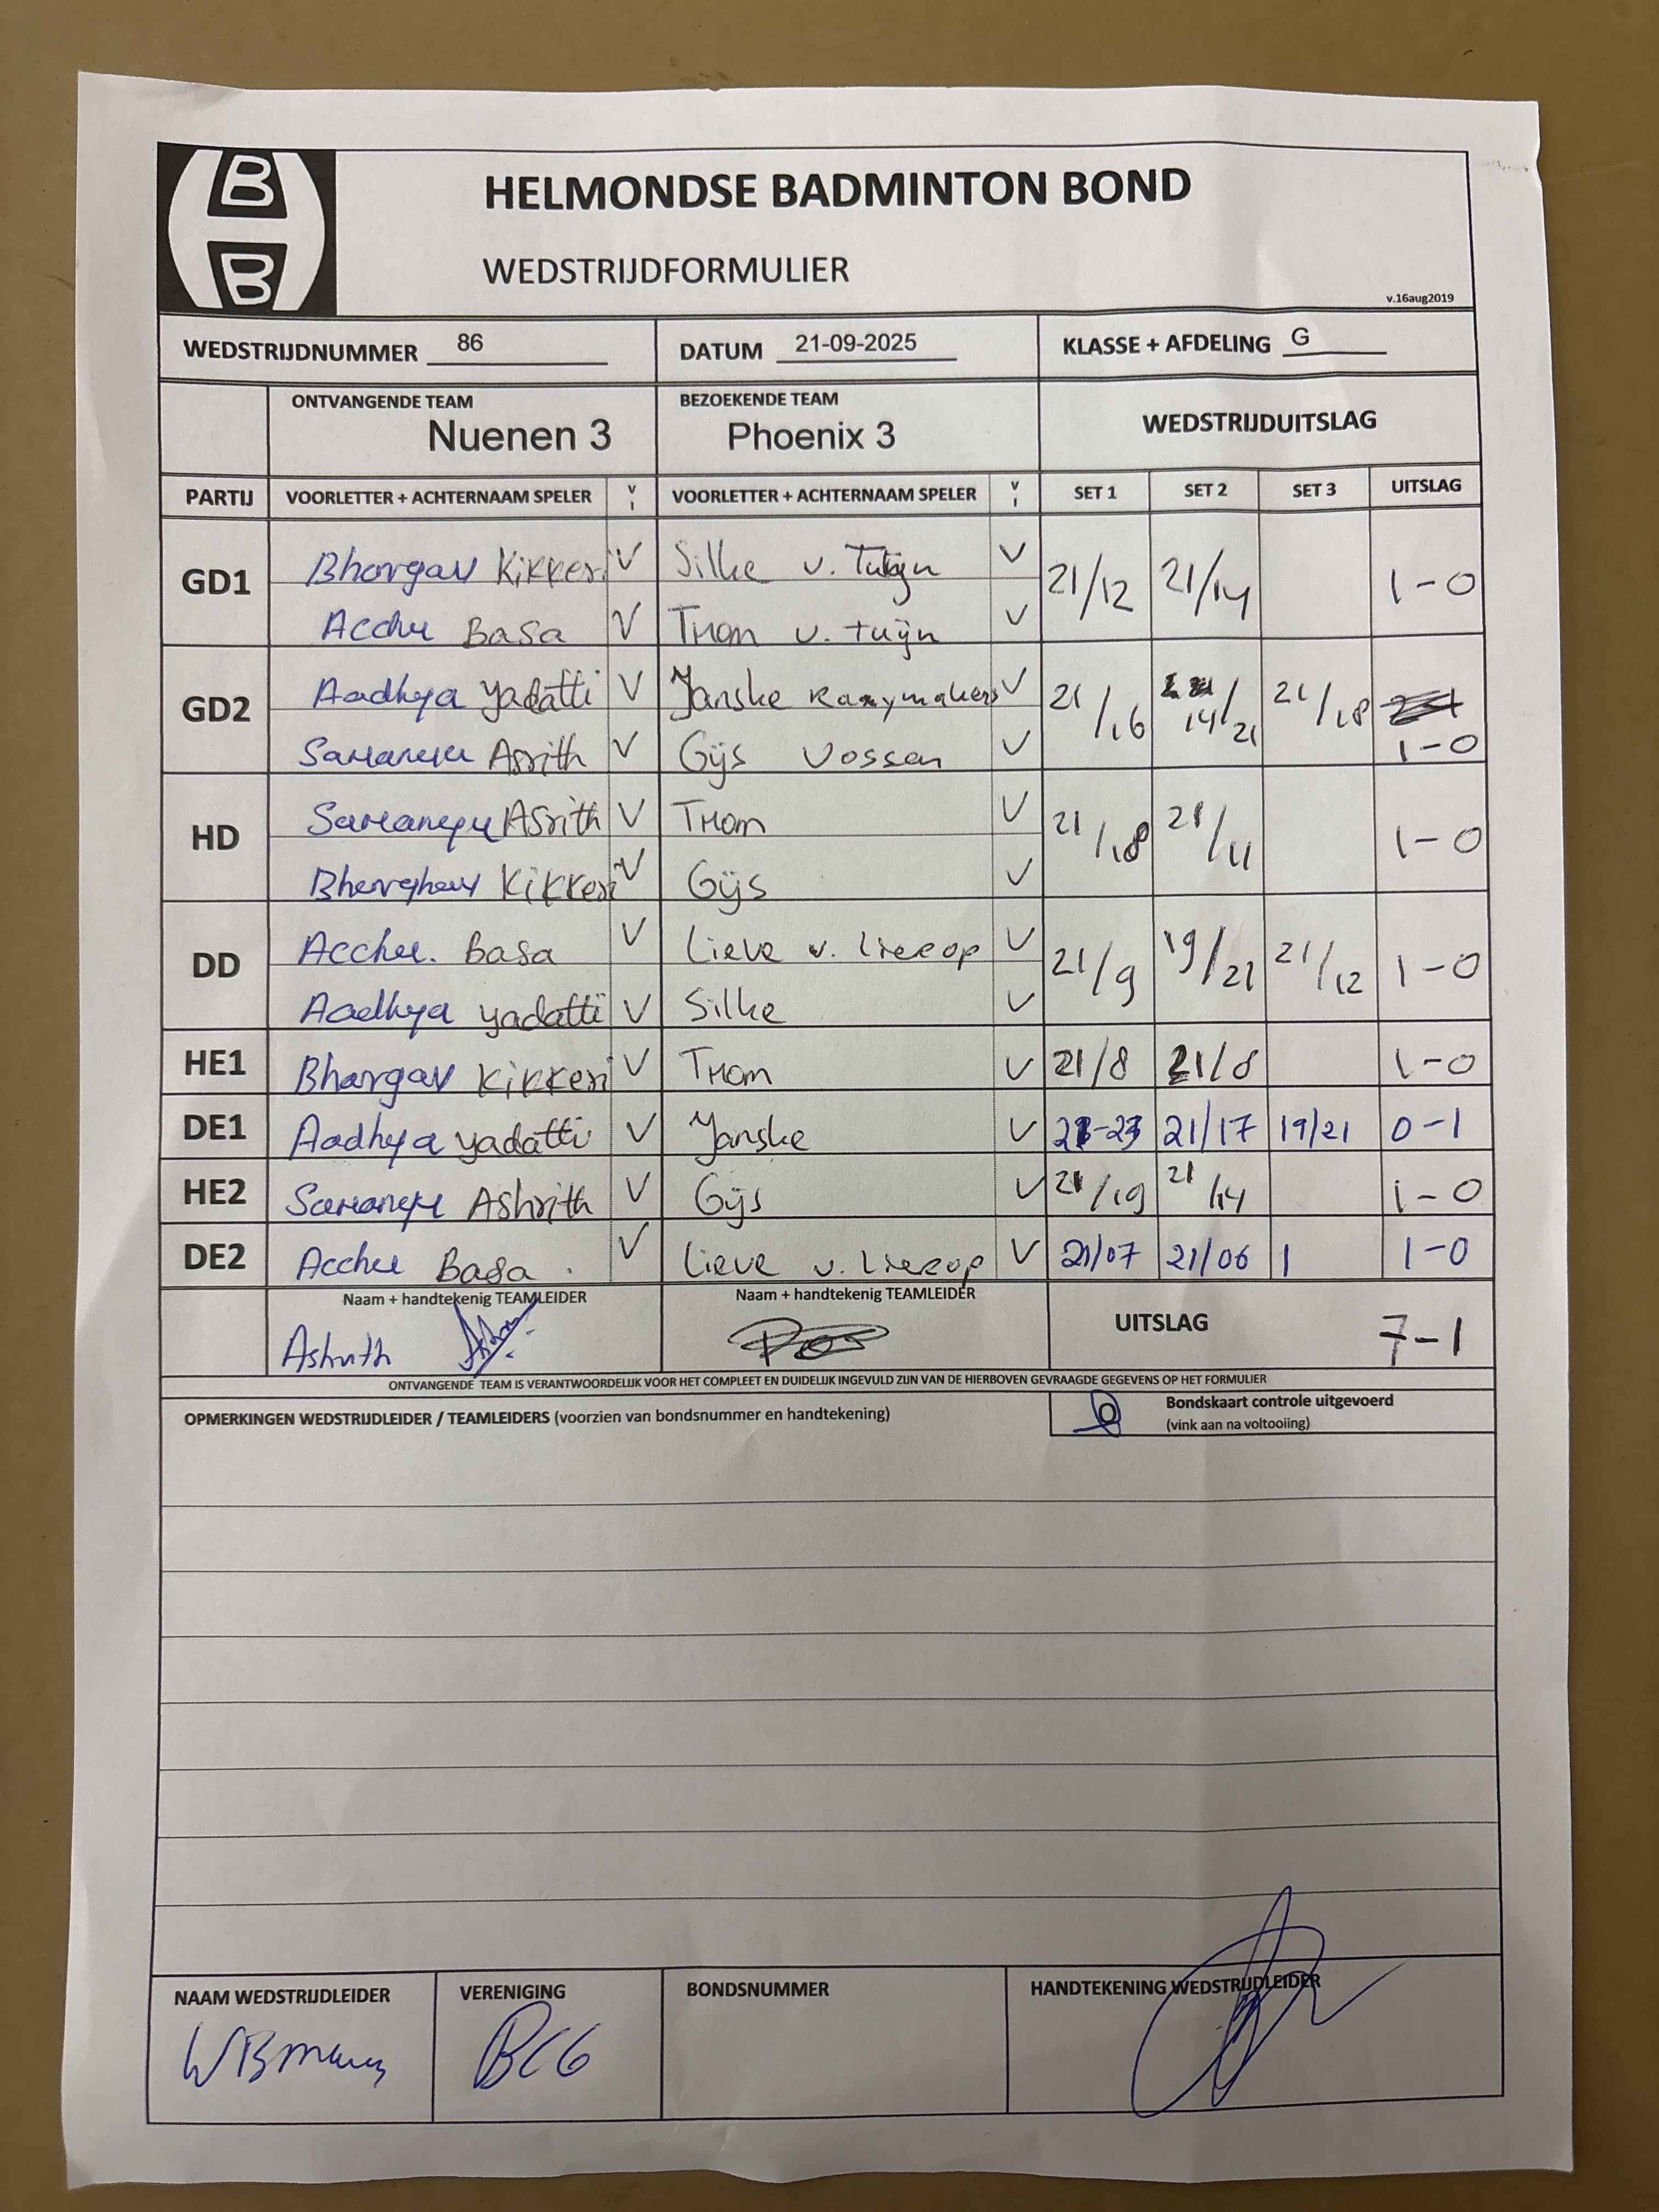 B
B
HELMONDSE BADMINTON BOND
WEDSTRIJDFORMULIER
v.16aug2019
WEDSTRIJDNUMMER 86 DATUM 21-09-2025 KLASSE + AFDELING G
ONTVANGENDE TEAM BEZOEKENDE TEAM WEDSTRIJDUITSLAG
Nuenen 3 Phoenix 3
PARTIJ VOORLETTER + ACHTERNAAM SPELER V I VOORLETTER + ACHTERNAAM SPELER V I SET 1 SET 2 SET 3 UITSLAG
GD1 Bhargav Kikkeri V Silke v. Tuijn V 21/12 21/14 1-0
Acchu Basa V Thom v. Tuijn V
GD2 Aadhya Yadatti V Janske Raaymakers V 21/16 14/21 21/18 1-0
Asrith V Gijs Vossen V
HD Asrith V Thom V 21/18 21/11 1-0
Kikkeri V Gijs V
DD Acchu. Basa V Lieve v. Lierop V 21/9 19/21 21/12 1-0
Aadhya Yadatti V Silke V
HE1 Bhargav Kikkeri V Thom V 21/8 21/8 1-0
DE1 Aadhya Yadatti V Janske V 21/17 19/21 0-1
HE2 Ashrith V Gijs V 21/19 21/14 1-0
DE2 Acchu Basa . V Lieve v. Lierop V 21/07 21/06 1-0
Naam + handtekenig TEAMLEIDER Naam + handtekenig TEAMLEIDER UITSLAG 7-1
Ashrith
ONTVANGENDE TEAM IS VERANTWOORDELIJK VOOR HET COMPLEET EN DUIDELIJK INGEVULD ZIJN VAN DE HIERBOVEN GEVRAAGDE GEGEVENS OP HET FORMULIER
OPMERKINGEN WEDSTRIJDLEIDER / TEAMLEIDERS (voorzien van bondsnummer en handtekening) Bondskaart controle uitgevoerd
(vink aan na voltooiing)
NAAM WEDSTRIJDLEIDER VERENIGING BONDSNUMMER HANDTEKENING WEDSTRIJDLEIDER
BCG